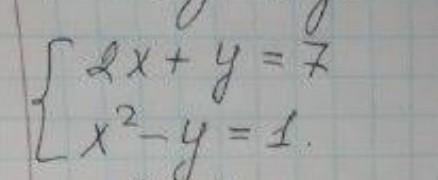 2x + y = 7
x² - y = 1.